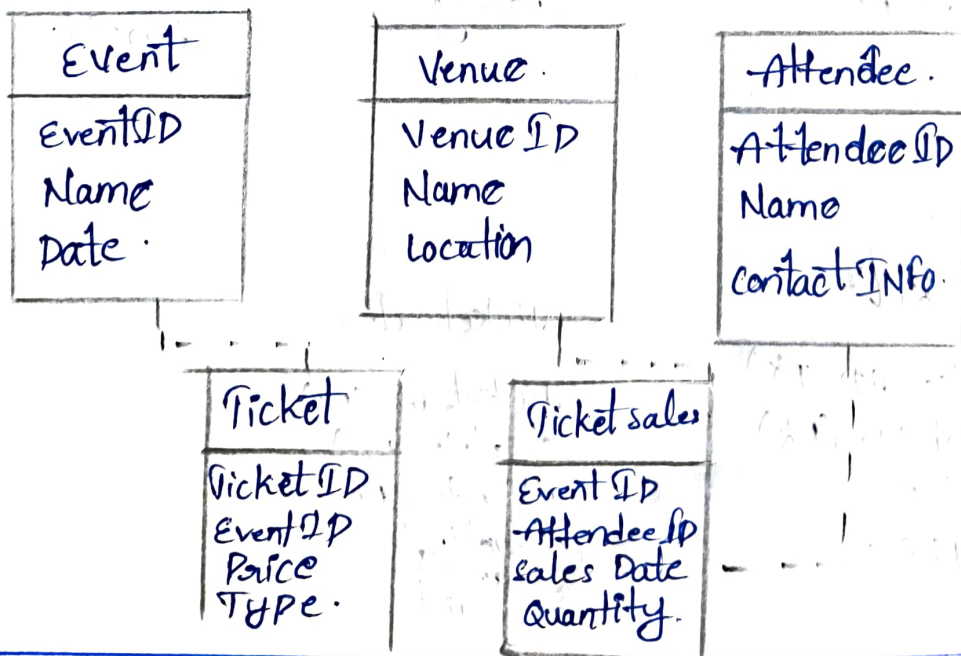 Event
EventID
Name
Date.
Venue.
Venue ID
Name
Location
Attendee.
Attendee ID
Name
Contact INFo.
Ticket
Ticket ID
Event ID
Price
TYPe.
Ticket sales
Event ID
Attendee ID
Sales Date
Quantity.